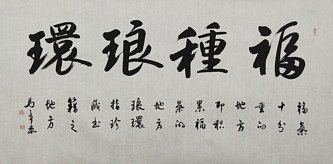 福種琅環
福氣
十分
重的
地方
即積
累福
氣的
地方
琅環
指珍
藏書
籍之
地方